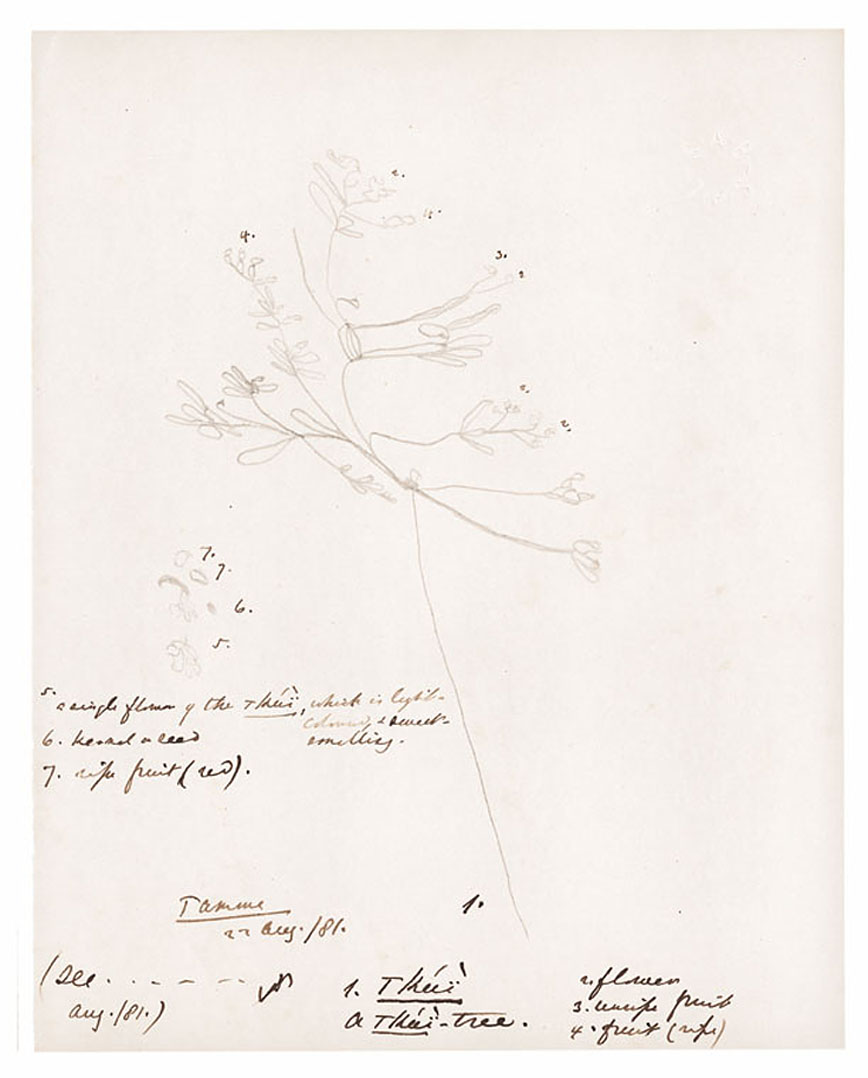 2.
4.
3.
2.
2.
2.
7.
7.
6.
5.
5. a single flower of the Tkúï, which is light-
coloured, & sweet-
smelling.
6. kernel or seed
7. ripe fruit (red).
Tamme
22 Aug./81.
1.
(See . . - - -
Aug./81.)
1. Tkúï
a Tkúï-tree.
2. flower
3. unripe fruit
4. fruit (ripe)